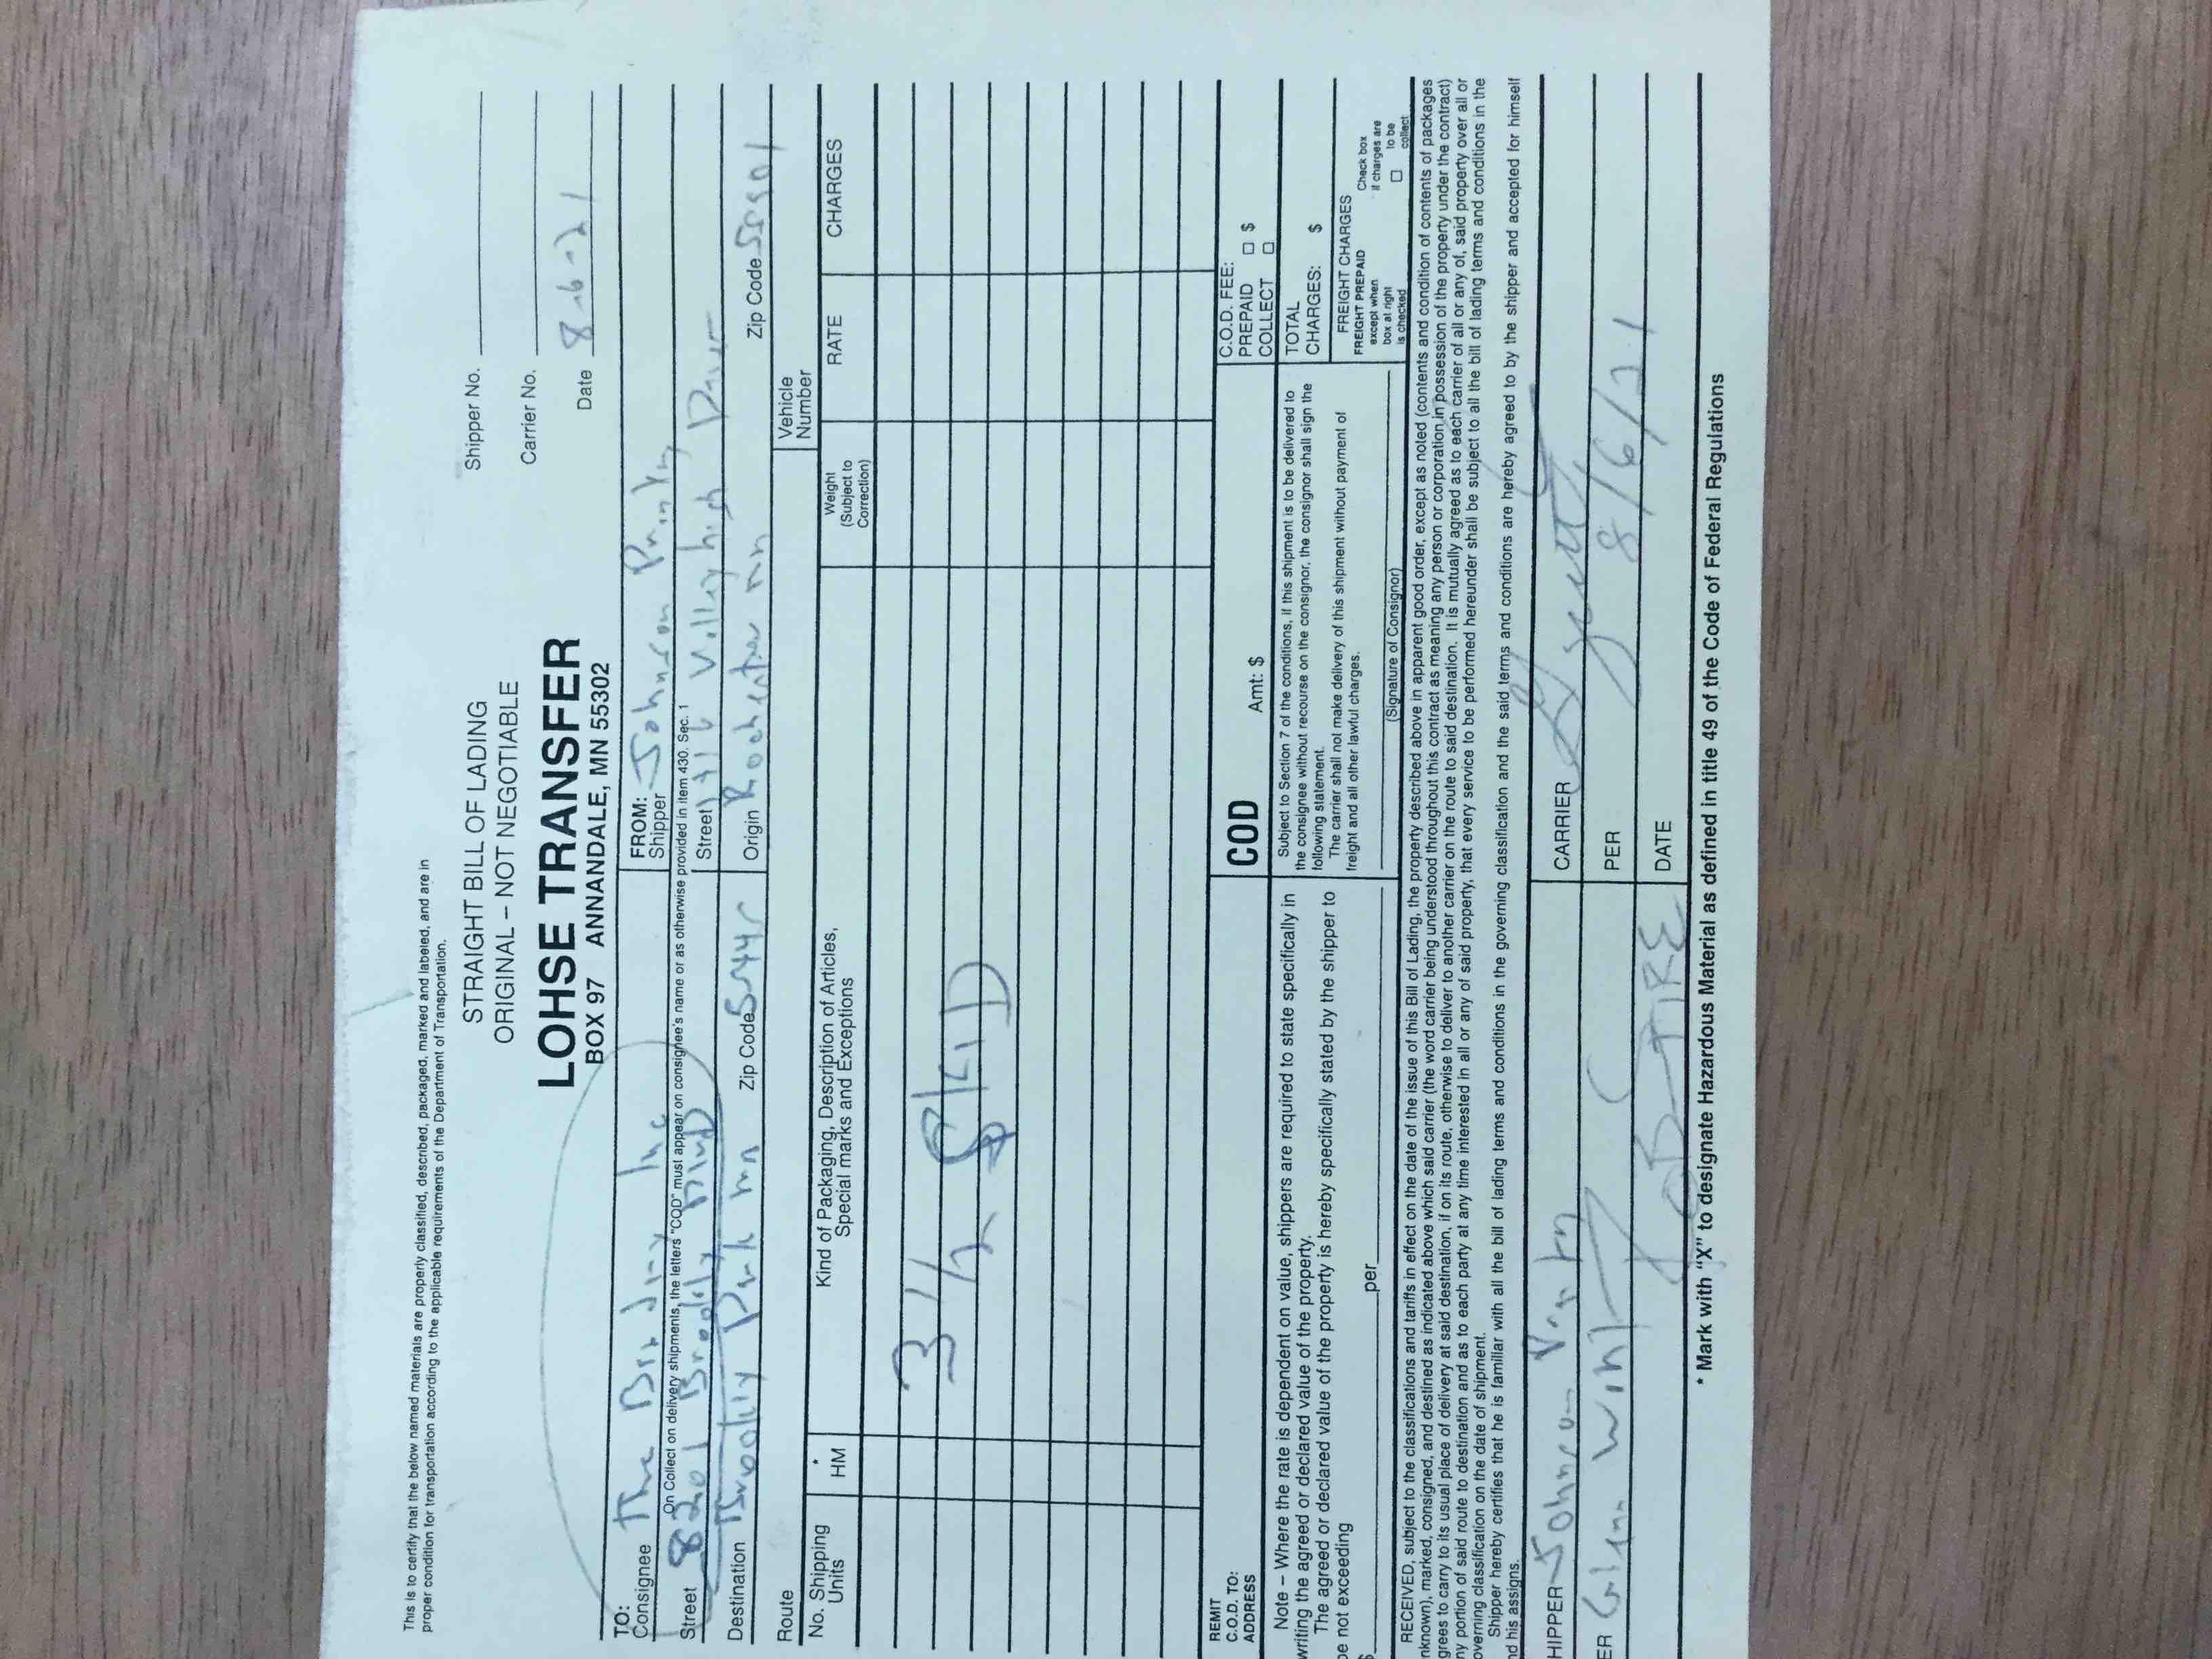 This is to certify that the below named materials are properly classified, described, packaged, marked and labeled, and are in
proper condition for transportation according to the applicable requirements of the Department of Transportation.
STRAIGHT BILL OF LADING
ORIGINAL – NOT NEGOTIABLE
Shipper No.
Carrier No.
LOHSE TRANSFER
BOX 97 ANNANDALE, MN 55302
Date 8-6-21
TO:
Consignee The Inc
FROM:
Shipper Johnson Printing
On Collect on delivery shipments, the letters "COD" must appear on consignee's name or as otherwise provided in item 430. Sec. 1
Street 8201 Brooklyn Blvd
Street Valleyhigh Drive
Destination Brooklyn Park mn Zip Code 55445
Origin Rochester mn Zip Code 55901
Route
Vehicle
Number
No. Shipping
Units
*
HM
Kind of Packaging, Description of Articles,
Special marks and Exceptions
Weight
(Subject to
Correction)
RATE
CHARGES
3 1/2 SKID
REMIT
C.O.D. TO:
ADDRESS
COD Amt: $
C.O.D. FEE:
PREPAID □ $
COLLECT □
Note – Where the rate is dependent on value, shippers are required to state specifically in
writing the agreed or declared value of the property.
The agreed or declared value of the property is hereby specifically stated by the shipper to
be not exceeding
$ per
Subject to Section 7 of the conditions, if this shipment is to be delivered to
the consignee without recourse on the consignor, the consignor shall sign the
following statement.
The carrier shall not make delivery of this shipment without payment of
freight and all other lawful charges.
(Signature of Consignor)
TOTAL
CHARGES: $
FREIGHT CHARGES
FREIGHT PREPAID
except when
box at right
is checked
Check box
if charges are
□ to be
collect
RECEIVED, subject to the classifications and tariffs in effect on the date of the issue of this Bill of Lading, the property described above in apparent good order, except as noted (contents and condition of contents of packages
nknown), marked, consigned, and destined as indicated above which said carrier (the word carrier being understood throughout this contract as meaning any person or corporation in possession of the property under the contract)
grees to carry to its usual place of delivery at said destination, if on its route, otherwise to deliver to another carrier on the route to said destination. It is mutually agreed as to each carrier of all or any of, said property over all or
ny portion of said route to destination and as to each party at any time interested in all or any of said property, that every service to be performed hereunder shall be subject to all the bill of lading terms and conditions in the
overning classification on the date of shipment.
Shipper hereby certifies that he is familiar with all the bill of lading terms and conditions in the governing classification and the said terms and conditions are hereby agreed to by the shipper and accepted for himself
nd his assigns.
HIPPER Johnson
CARRIER
ER Glenn
PER
DATE 8/6/21
* Mark with "X" to designate Hazardous Material as defined in title 49 of the Code of Federal Regulations